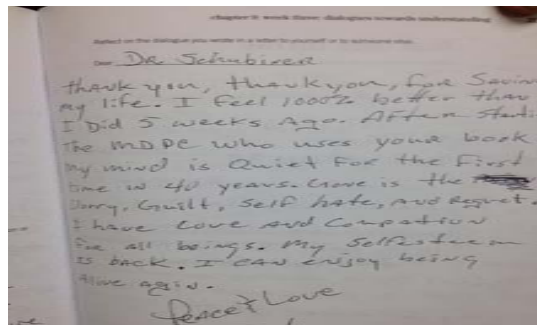 chapter 9 work three: dialogues towards understanding
Reflect on the dialogue you wrote in a letter to yourself or to someone else.
Dear Dr Schubiner
thank you, thank you, for Saving
my life. I feel 1000% better than
I Did 5 weeks Ago. After Starti
The MDPC who uses your book
My mind is Quiet for the First
time in 40 years. Gone is the
Worry, Guilt, Self hate, and Regret.
I have Love and Compation
for all beings. My Selfesteem
is back. I can enjoy being
Alive again.
Peace & Love